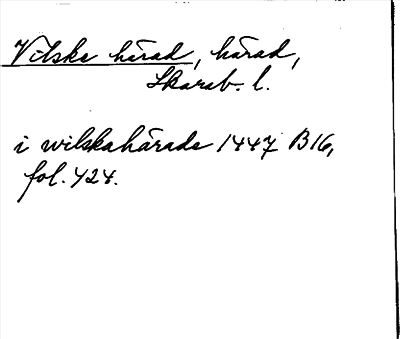 Vilske härad, härad,
Skarab. l.
i wilskahärade 1447 B16,
fol. 424.